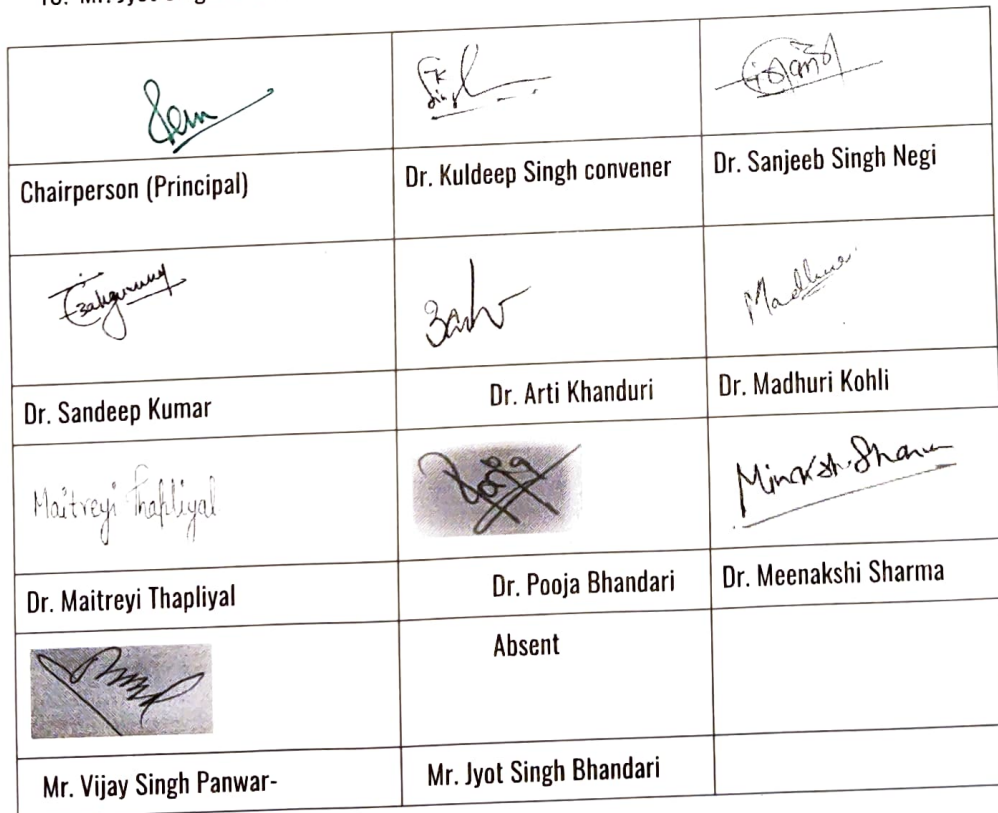 Chairperson (Principal)
Dr. Kuldeep Singh convener
Dr. Sanjeeb Singh Negi
Madhuri
Dr. Sandeep Kumar
Dr. Arti Khanduri
Dr. Madhuri Kohli
Maitreyi Thapliyal
Minakshi Sharma
Dr. Maitreyi Thapliyal
Dr. Pooja Bhandari
Dr. Meenakshi Sharma
Absent
Mr. Vijay Singh Panwar-
Mr. Jyot Singh Bhandari